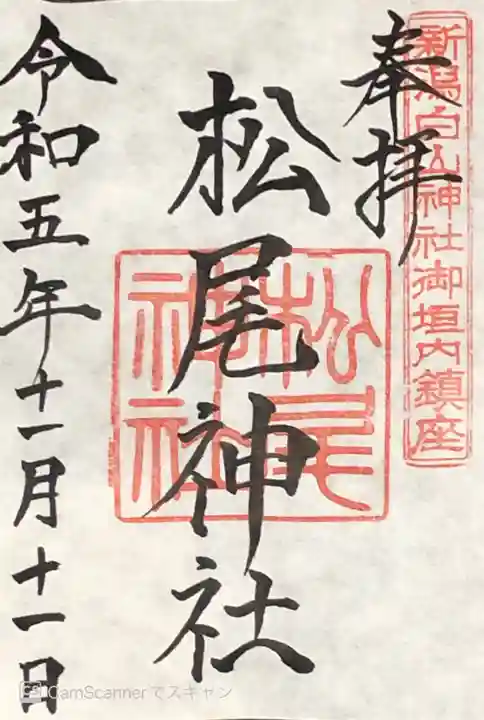 新潟白山神社御垣内鎮座
奉拝
松尾神社
松尾
神社
令和五年十一月十一日
CamScannerでスキャン